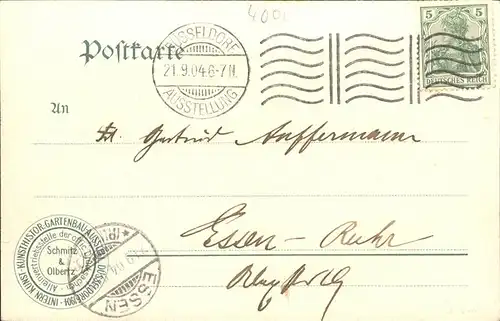 4001
DÜSSELDORF
21.9.04.6-7N.
AUSSTELLUNG
5 5
DEUTSCHES REICH
Postkarte
An
Frl. Gertrud Auffermann
Essen-Ruhr
INTERN. KUNST-KUNSTHISTOR.-GARTENBAU-AUSST. DÜSSELDORF 1904
Schmitz
&
Olbertz
ESSEN